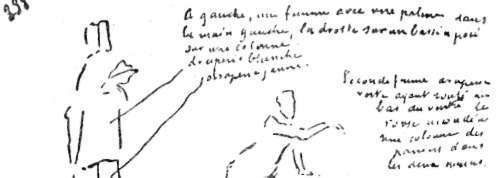 A gauche, une femme avec une palme dans
la main gauche, la droite sur un bassin posé
sur une colonne
draperie blanche
Seconde femme
verte ayant roulé au
bas du ventre le
torse
une colonne des
dans
les deux mains.